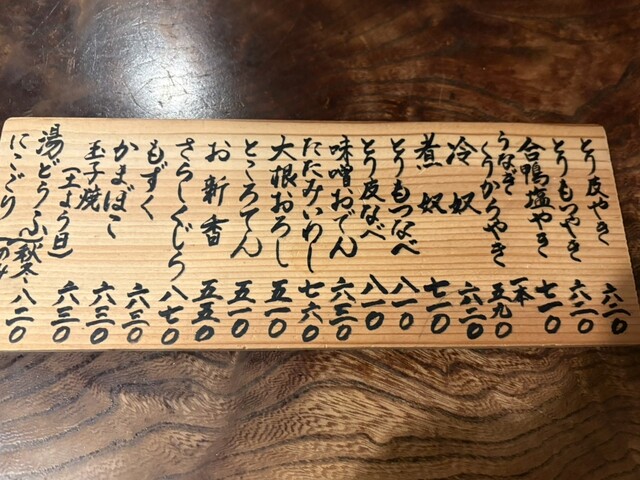 とり皮やき 六二〇
とりもつやき 六二〇
合鴨塩やき 七一〇
うなぎ
くりからやき 一本 五九〇
冷奴 六二〇
煮奴 七一〇
とりもつなべ 八一〇
とり皮なべ 八一〇
味噌おでん 六三〇
たたみいわし 七六〇
大根おろし 五一〇
ところてん 五一〇
お新香 五五〇
さらしくじら 八七〇
もずく 六三〇
かまぼこ 六三〇
玉子焼 六三〇
(土よう日)
湯どうふ (秋冬のみ 八二〇
にこごり